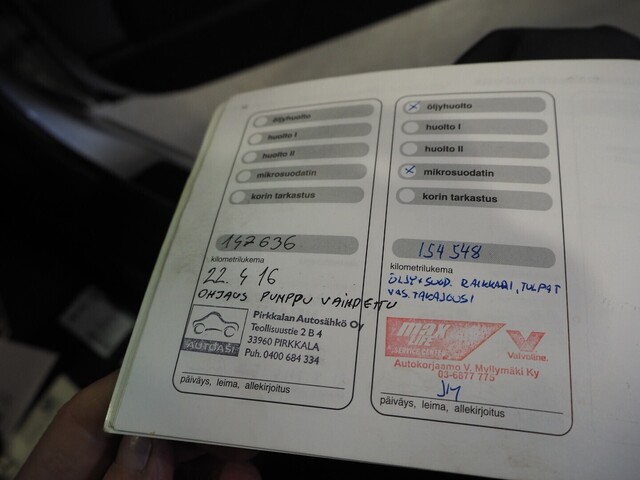 öljyhuolto
huolto I
huolto II
mikrosuodatin
korin tarkastus
147636
kilometrilukema
22.4 16
OHJAUS PUMPPU VAIHDETTU
AUTOASI
Pirkkalan Autosähkö Oy
Teollisuustie 2 B 4
33960 PIRKKALA
Puh. 0400 684 334
päiväys, leima, allekirjoitus
öljyhuolto
huolto I
huolto II
mikrosuodatin
korin tarkastus
154 548
kilometrilukema
ÖLJY+SUOD. RAIKKARI, TULPAT
VAS. TAKAJOUSI
max
LIFE
SERVICE CENTER
Valvoline.
Autokorjaamo V. Myllymäki Ky
03-6877 775
päiväys, leima, allekirjoitus